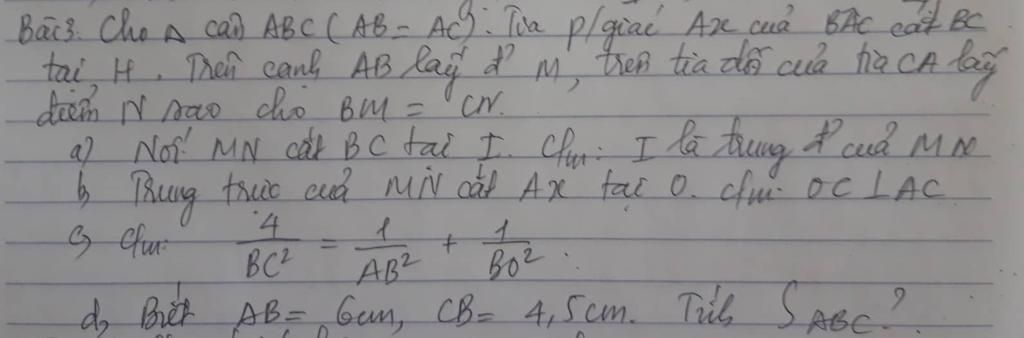 Bài 3. Cho Δ cân ABC (AB = AC). Tia p/giác Ax của BAC cắt BC
tại H. Trên cạnh AB lấy đ' M, trên tia đối của tia CA lấy
điểm N sao cho BM = CN.
a) Nối MN cắt BC tại I. Cm: I là trung đ' của MN
b) Trung trực của MN cắt Ax tại O. Cm: OC ⊥ AC
c) Cm: 4/BC² = 1/AB² + 1/BO².
d) Biết AB = 6cm, CB = 4,5cm. Tính S ABC?